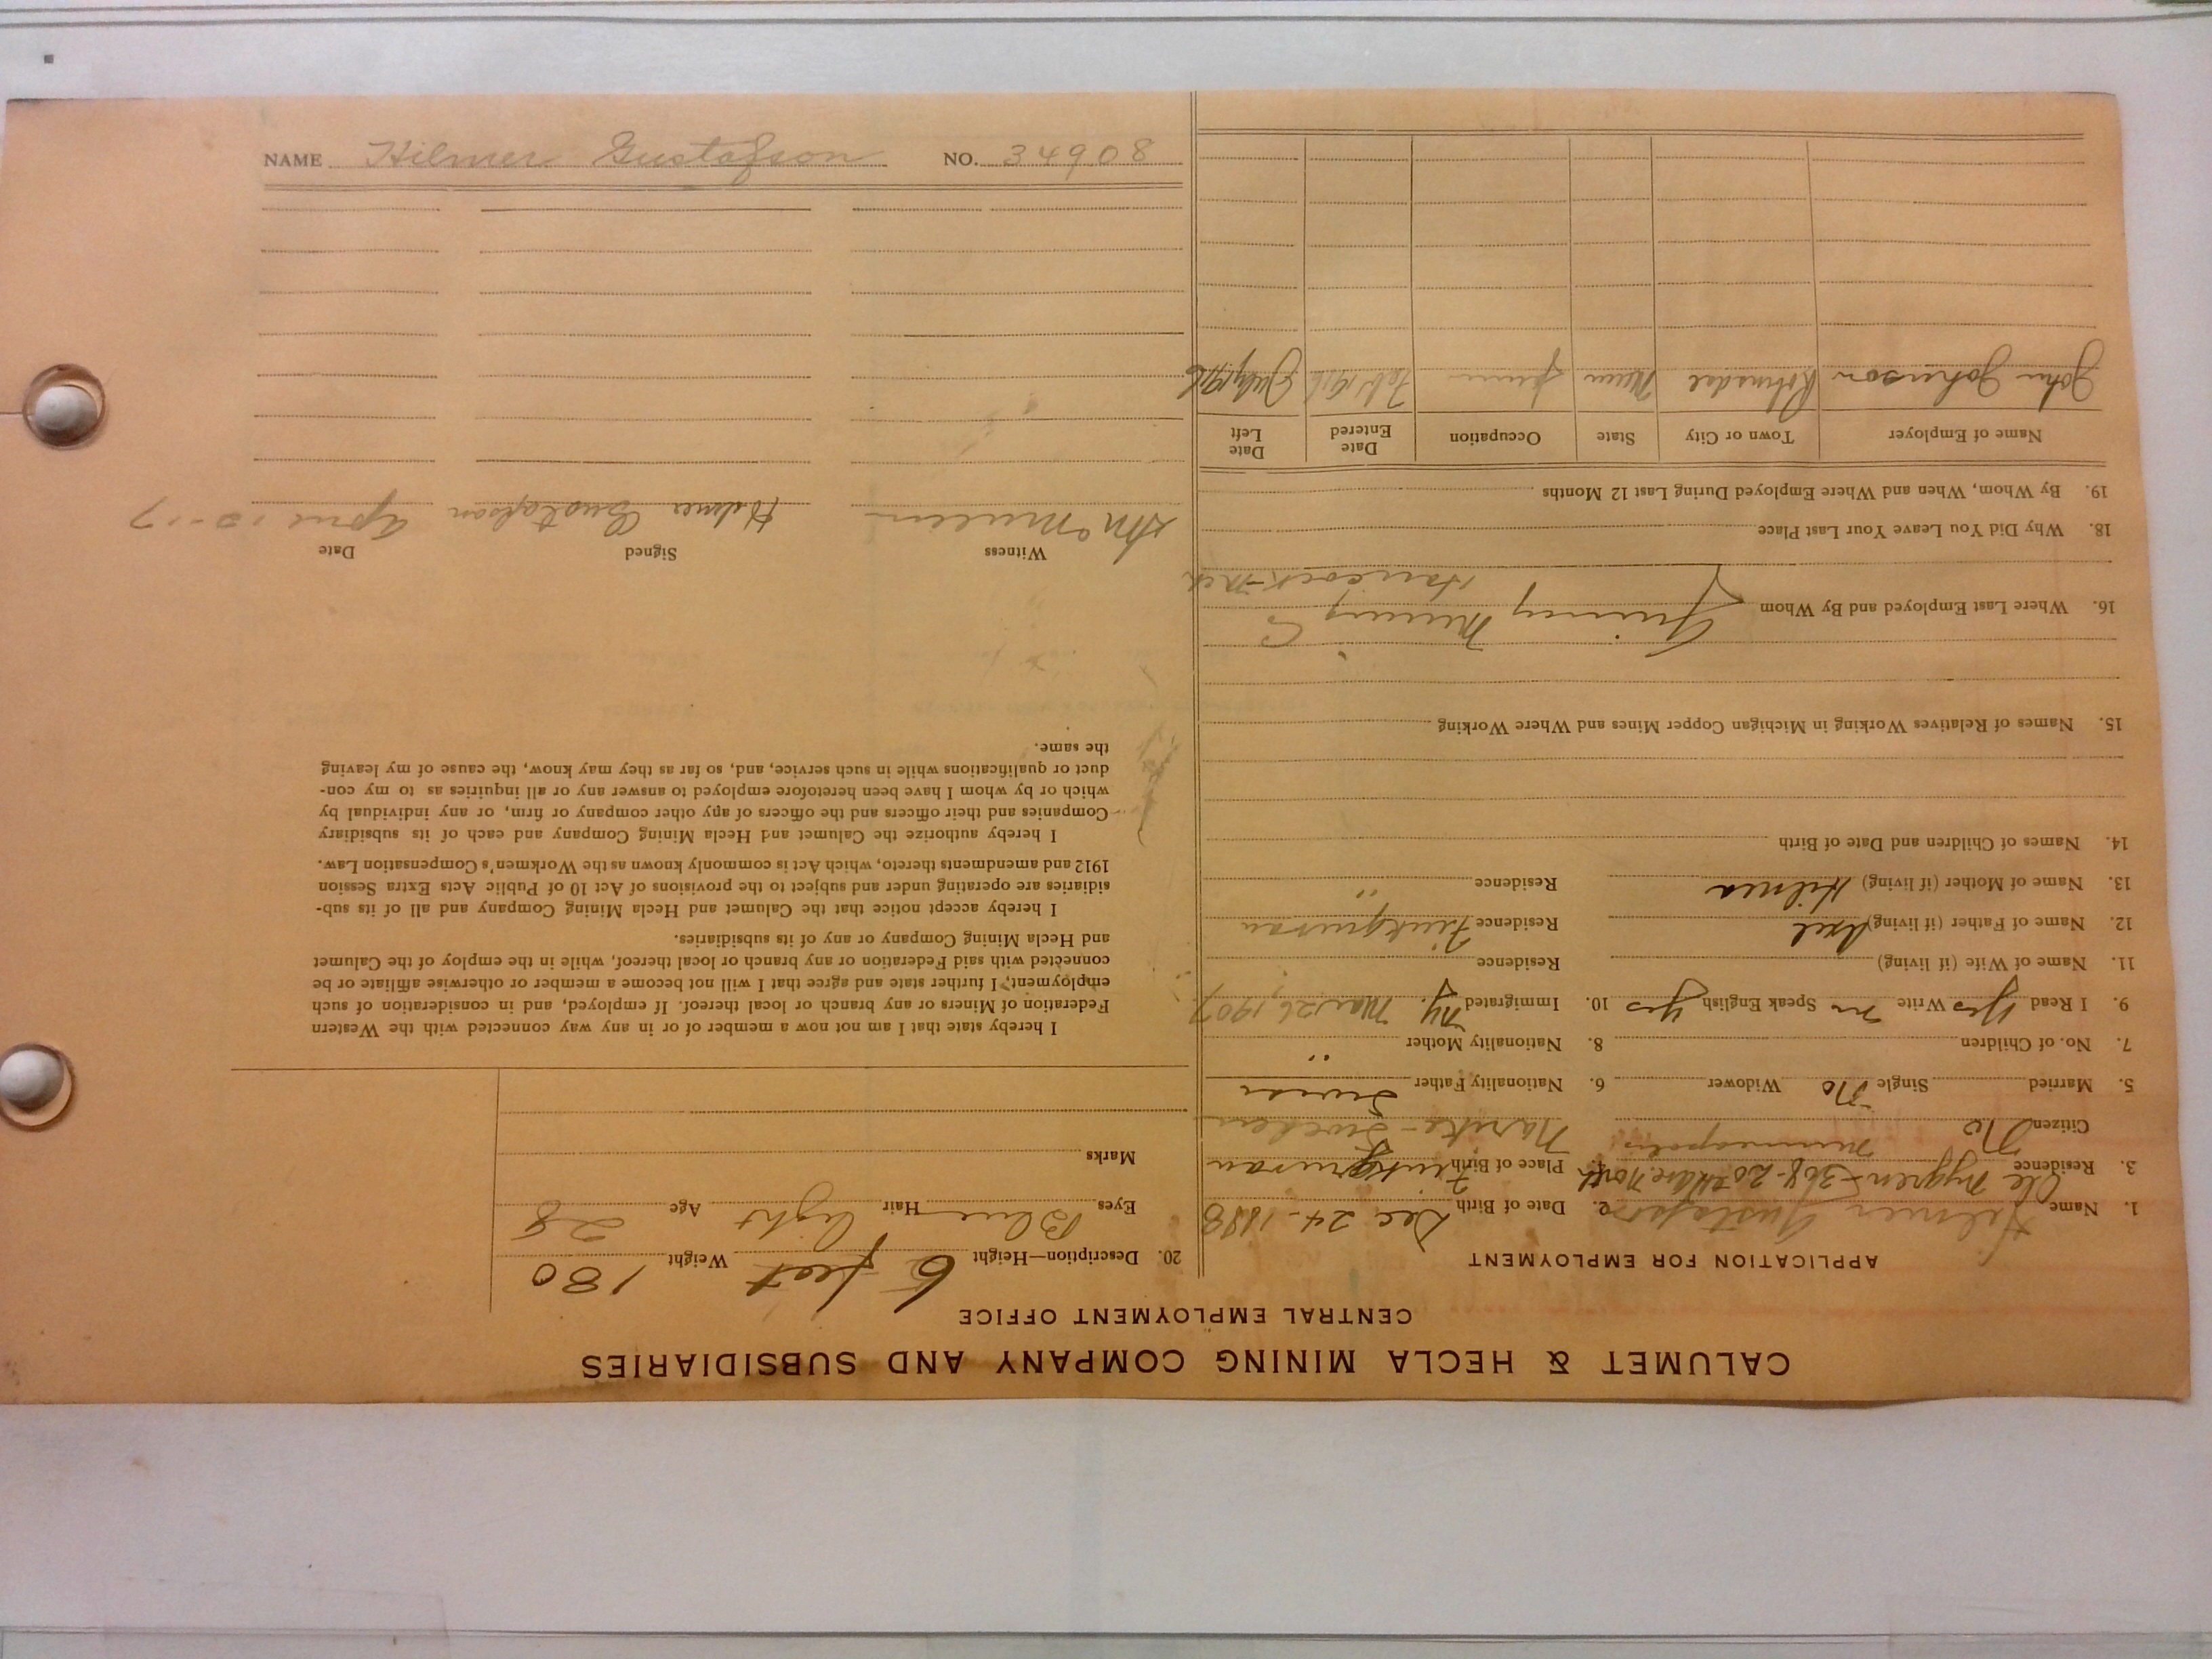 NAME Hilmer Gustafson NO. 34908
CALUMET & HECLA MINING COMPANY AND SUBSIDIARIES
CENTRAL EMPLOYMENT OFFICE
APPLICATION FOR EMPLOYMENT
1. Name Hilmer Gustafson 2. Date of Birth Dec. 24-1888
3. Residence Ole Nygren - 368-20th Ave. North 4. Place of Birth
Minneapolis
Citizen No Sweden
5. Married Single No Widower 6. Nationality Father Swede
7. No. of Children 8. Nationality Mother "
9. I Read Yes Write Speak English Yes 10. Immigrated N.Y. Mar 26, 1907
11. Name of Wife (if living) Residence
12. Name of Father (if living) Axel Residence
13. Name of Mother (if living) Hilma Residence "
14. Names of Children and Date of Birth
15. Names of Relatives Working in Michigan Copper Mines and Where Working
Quincy Mining Co
16. Where Last Employed and By Whom
Hancock-Mich
18. Why Did You Leave Your Last Place
19. By Whom, When and Where Employed During Last 12 Months
Name of Employer Town or City State Occupation Date Entered Date Left
John Johnson Minn Feb 1916 July 1916
20. Description—Height 6 feet Weight 180
Eyes Blue Hair light Age 28
Marks
I hereby state that I am not now a member of or in any way connected with the Western
Federation of Miners or any branch or local thereof. If employed, and in consideration of such
employment, I further state and agree that I will not become a member or otherwise affiliate or be
connected with said Federation or any branch or local thereof, while in the employ of the Calumet
and Hecla Mining Company or any of its subsidiaries.
I hereby accept notice that the Calumet and Hecla Mining Company and all of its sub-
sidiaries are operating under and subject to the provisions of Act 10 of Public Acts Extra Session
1912 and amendments thereto, which Act is commonly known as the Workmen's Compensation Law.
I hereby authorize the Calumet and Hecla Mining Company and each of its subsidiary
Companies and their officers and the officers of any other company or firm, or any individual by
which or by whom I have been heretofore employed to answer any or all inquiries as to my con-
duct or qualifications while in such service, and, so far as they may know, the cause of my leaving
the same.
Witness Signed Date
Hilmer Gustafson April 10-17